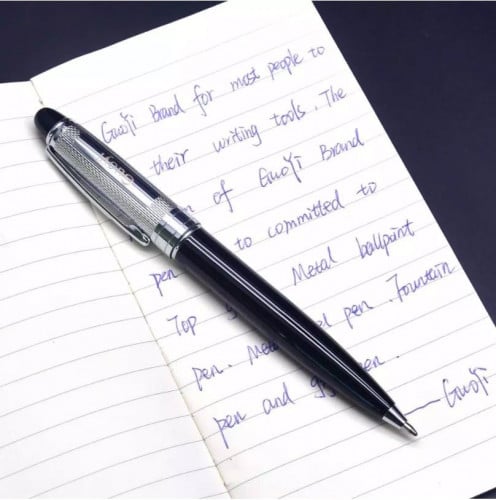 GuoYi Brand for most people to
their writing tools. The
of GuoYi Brand
pen to committed to
Top Metal ballpoint
pen. pen. Fountain
pen and pen.
— GuoYi